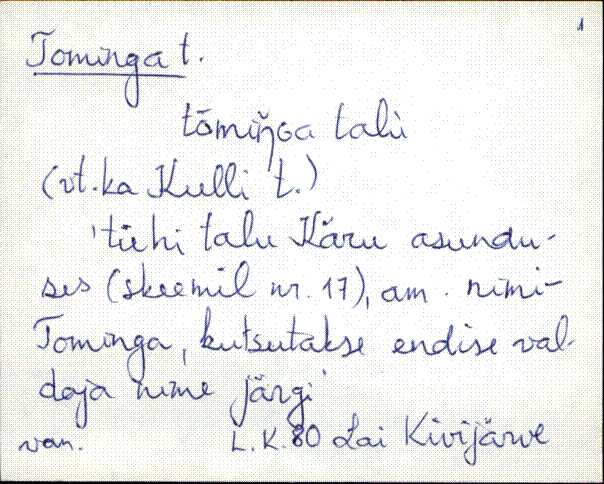 1
Tominga t.
tomiŋ̆ɢa talù
(vt. ka Kulli t.)
'tühi talu Käru asundu-
ses (skeemil nr. 17), am. nimi-
Tominga, kutsutakse endise val-
daja nime järgi'
van. L.K.80 Lai Kivijärve